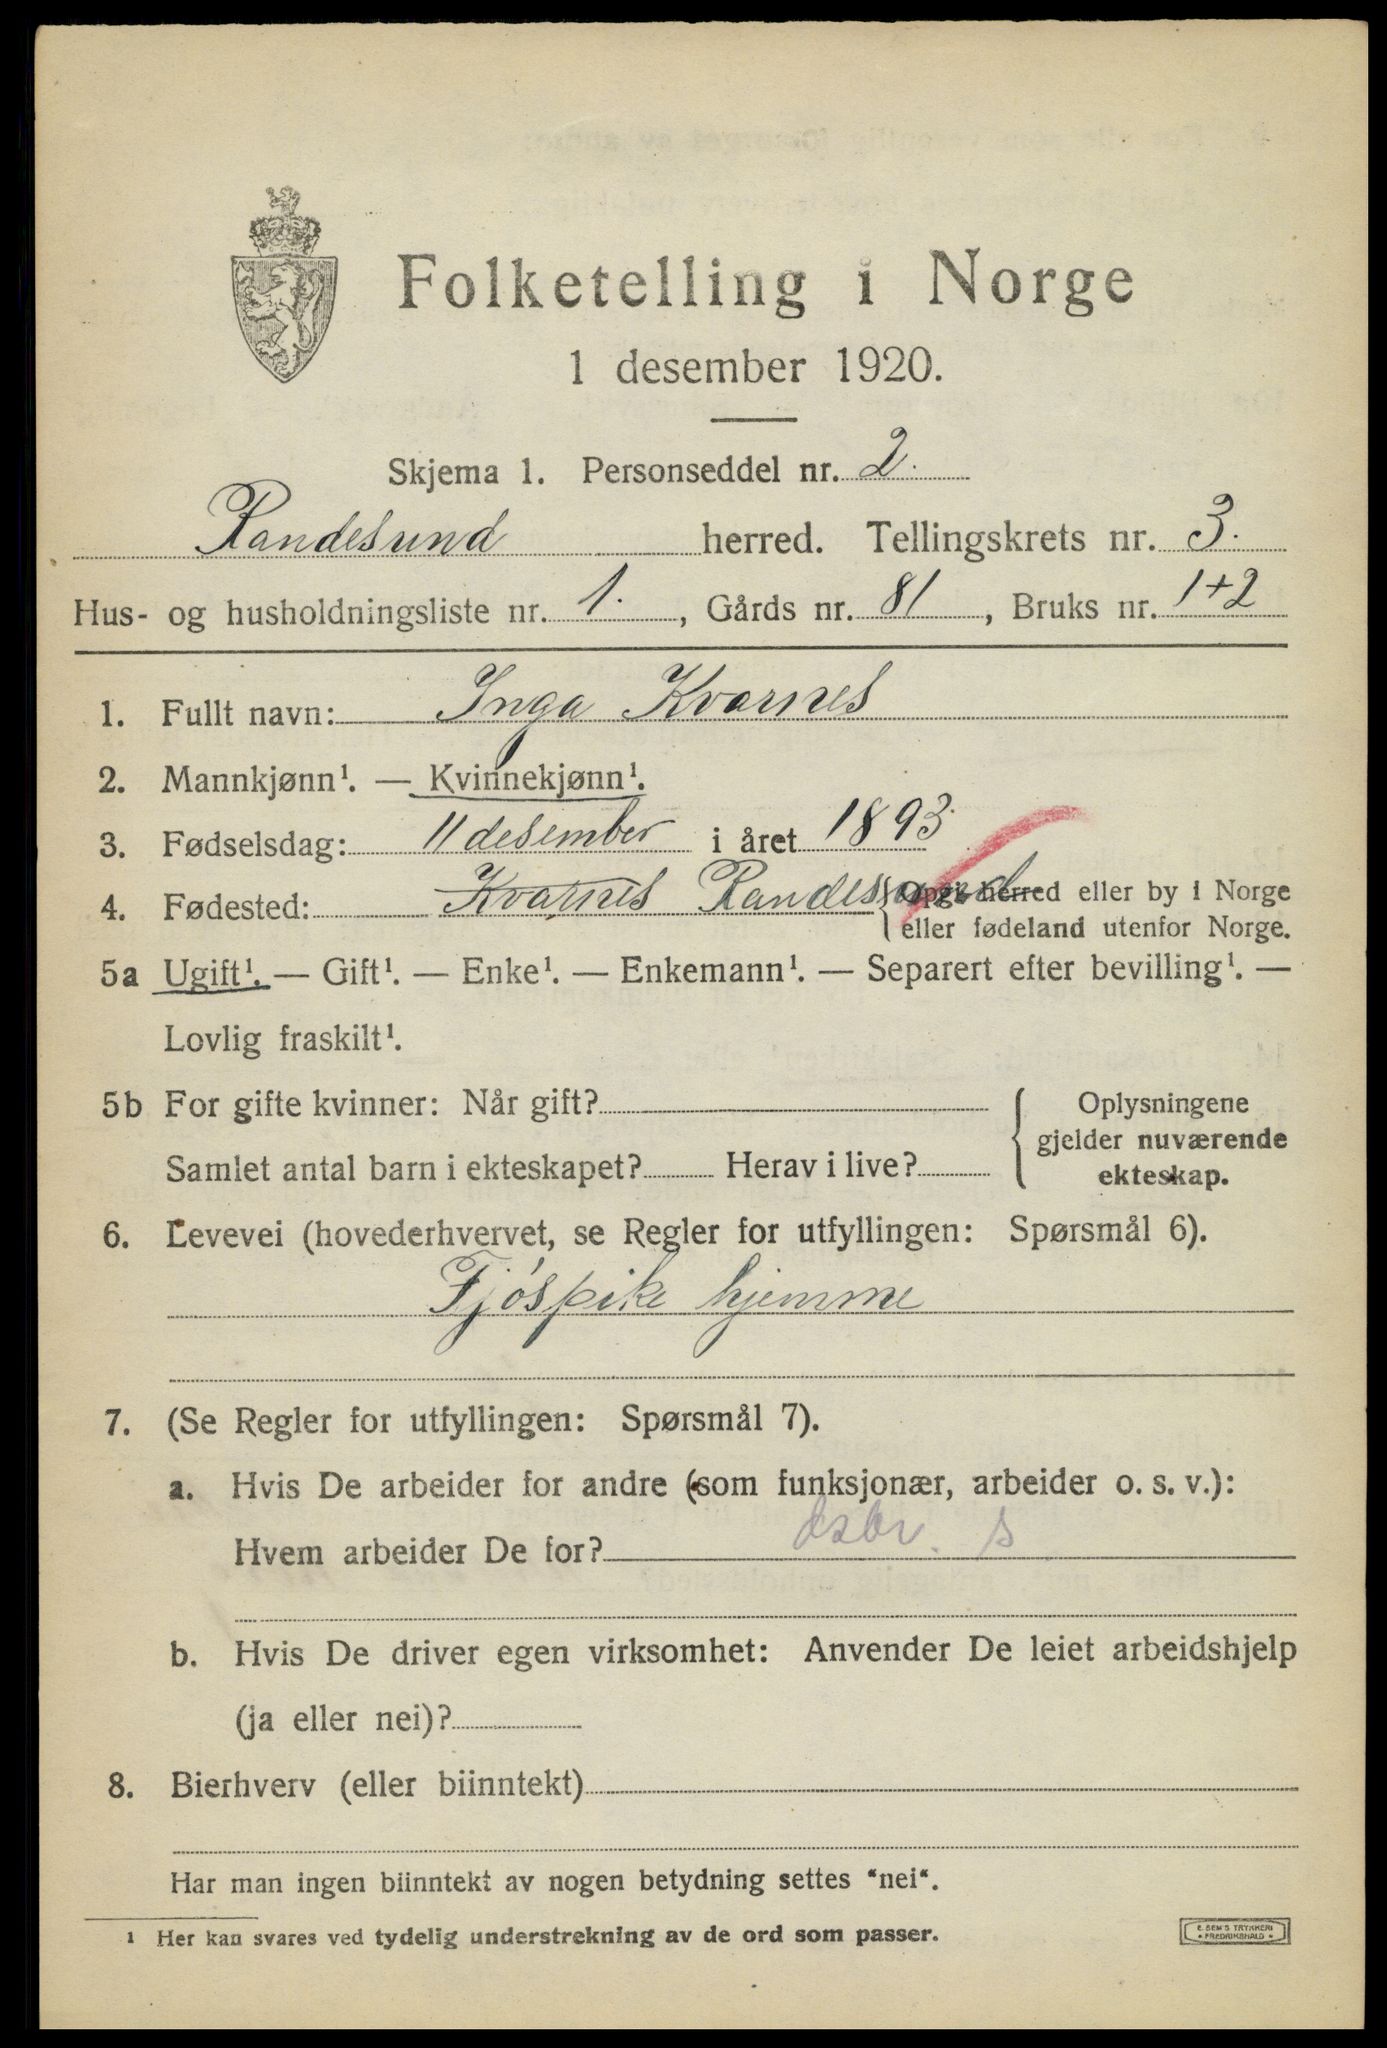 Folketelling i Norge
1 desember 1920.
Skjema 1. Personseddel nr. 2.
Randesund herred. Tellingskrets nr. 3.
Hus- og husholdningsliste nr. 1. , Gårds nr. 81 , Bruks nr. 1+2
1. Fullt navn: Inga Kvarnes
2. Mannkjønn¹. — Kvinnekjønn¹.
3. Fødselsdag: 11 desember i året 1893.
4. Fødested: Kvarnes Randesund {Opgi herred eller by i Norge
eller fødeland utenfor Norge.
5a Ugift¹. — Gift¹. — Enke¹. — Enkemann¹. — Separert efter bevilling¹. —
Lovlig fraskilt¹.
5b For gifte kvinner: Når gift?
Samlet antal barn i ekteskapet? Herav i live?
{Oplysningene
gjelder nuværende
ekteskap.
6. Levevei (hovederhvervet, se Regler for utfyllingen: Spørsmål 6).
Fjóspike hjemme
7. (Se Regler for utfyllingen: Spørsmål 7).
a. Hvis De arbeider for andre (som funksjonær, arbeider o. s. v.):
Hvem arbeider De for? s
b. Hvis De driver egen virksomhet: Anvender De leiet arbeidshjelp
(ja eller nei)?
8. Bierhverv (eller biinntekt)
Har man ingen biinntekt av nogen betydning settes "nei".
1 Her kan svares ved tydelig understrekning av de ord som passer.
E. SEM'S TRYKKERI
• FREDRIKSHALD •